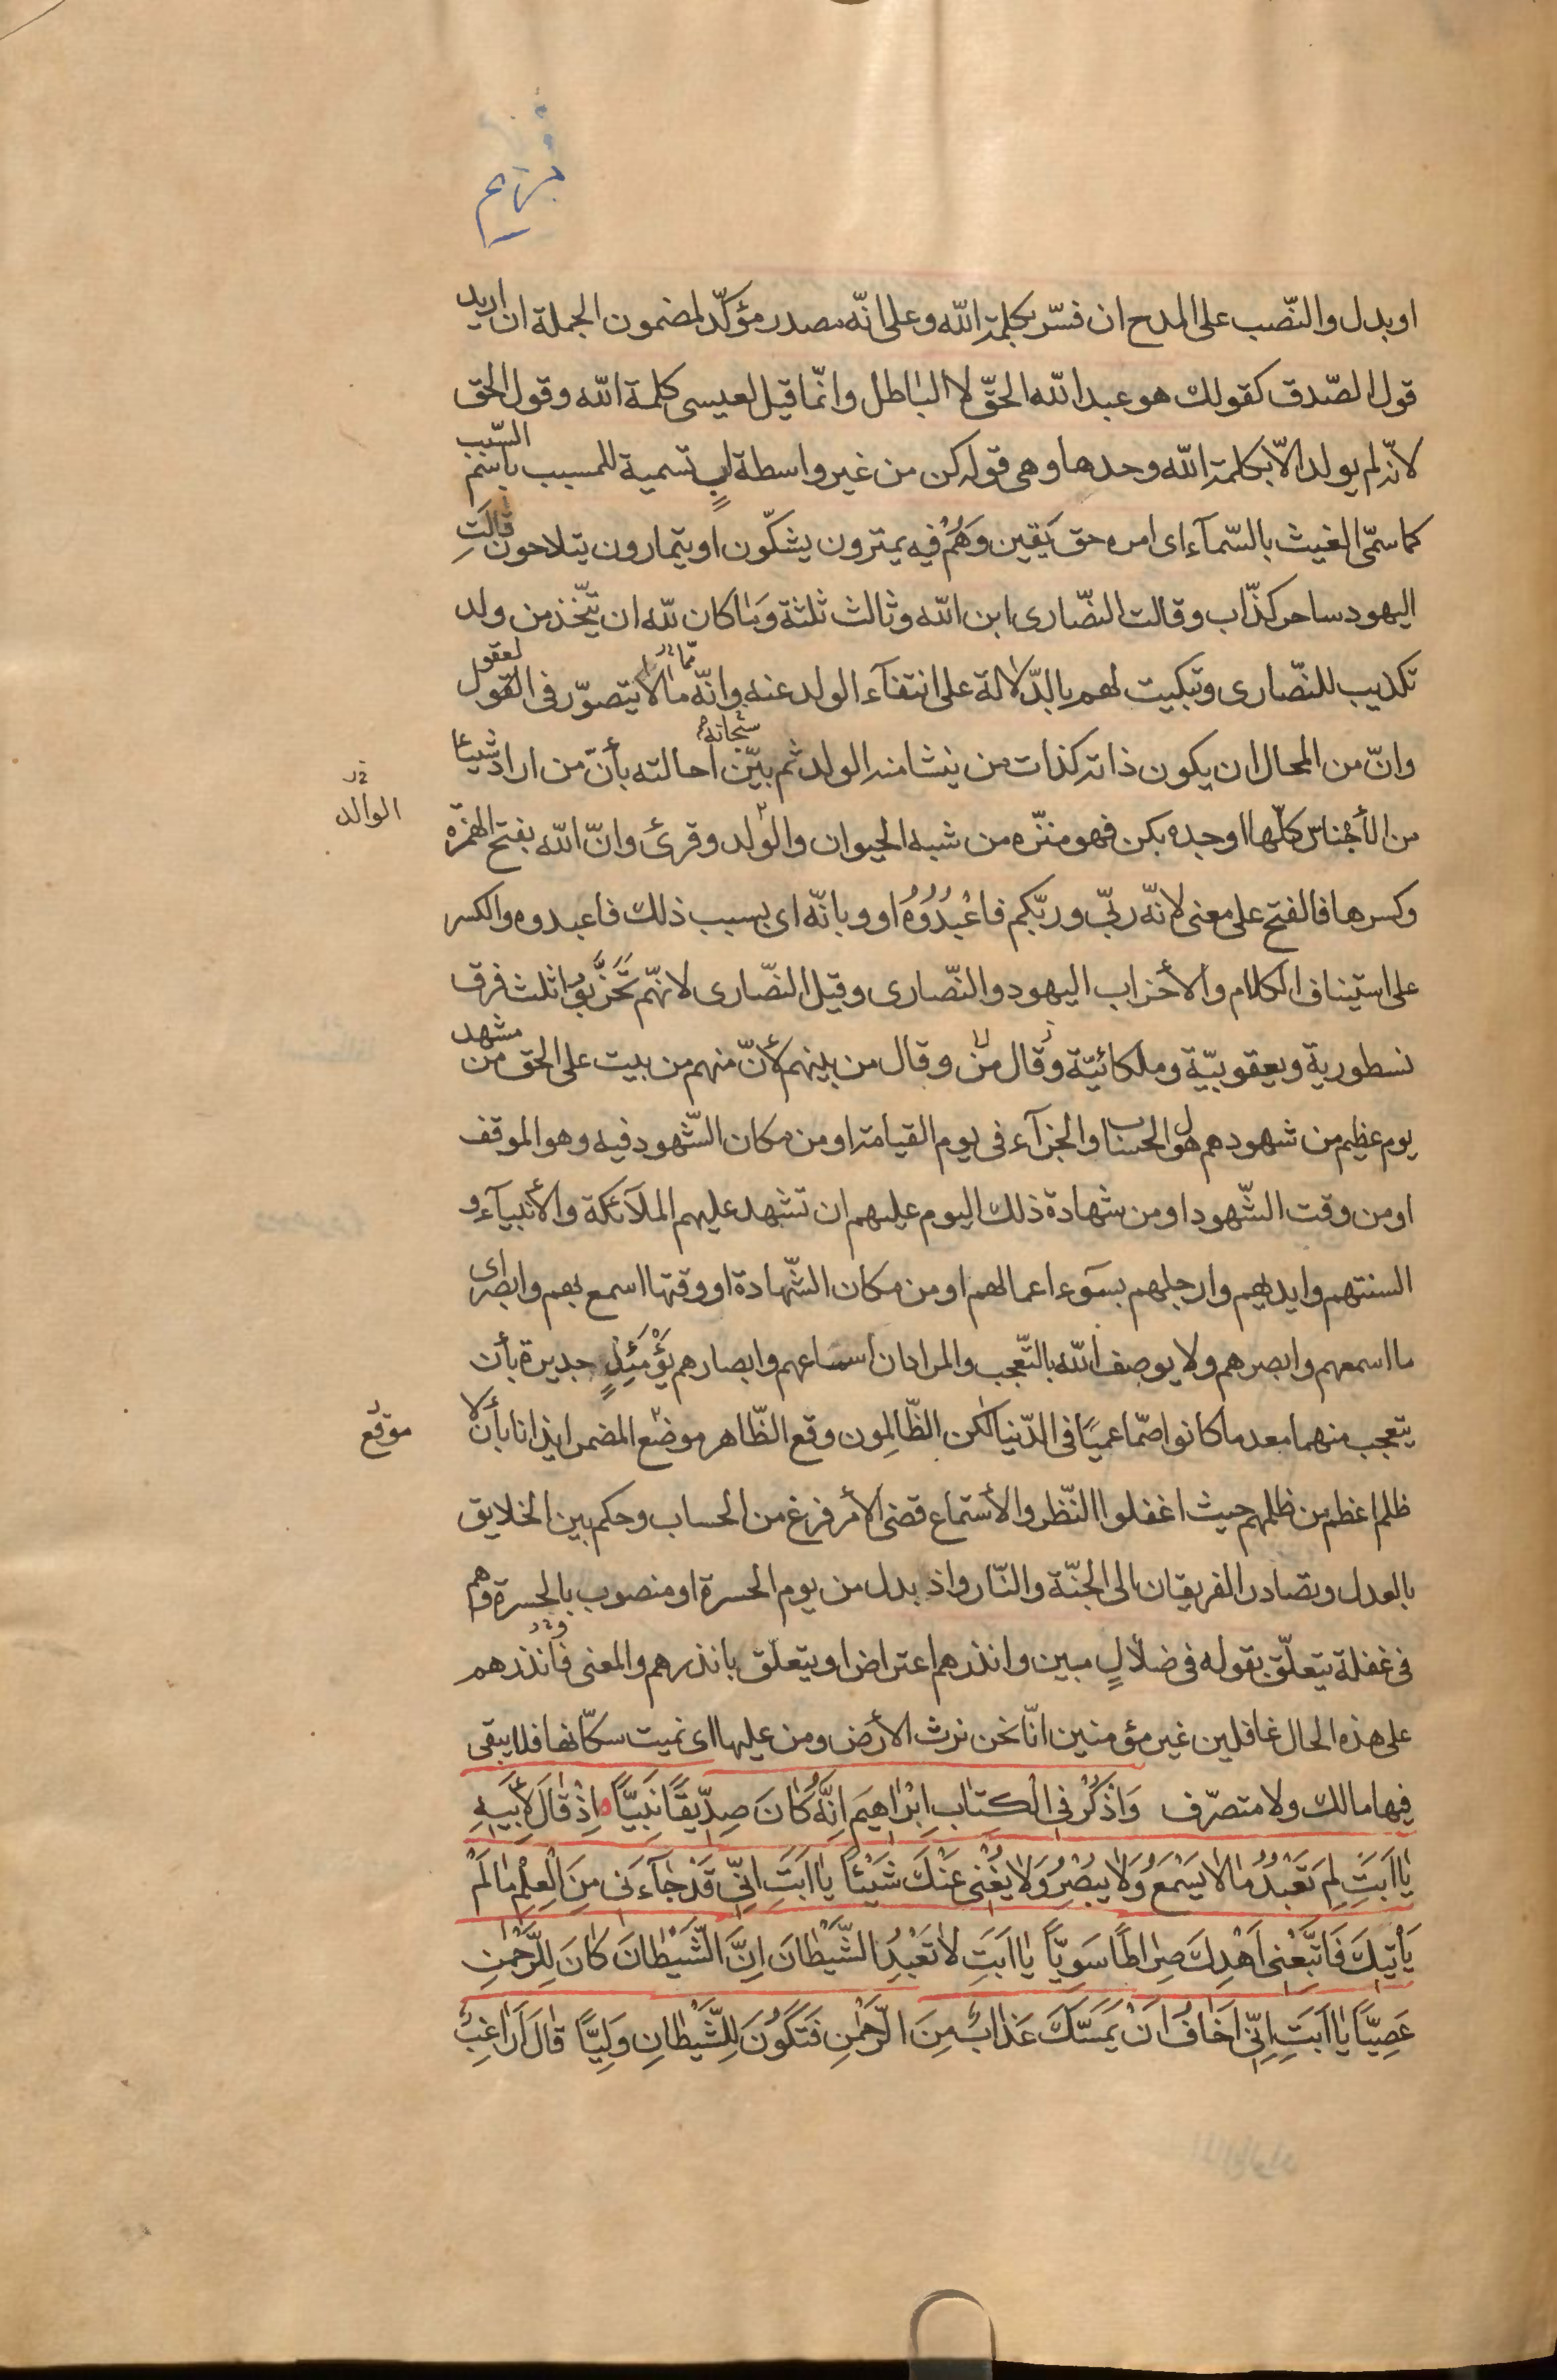 مريم
او بدل والنّصب على المدح ان فسّر بكلمة اللّه وعلى انّه مصدر مؤكّد لمضمون الجملة ان اريد
قول الصّدق كقولك هو عبد اللّه الحقّ لا الباطل وانّما قيل لعيسى كلمة اللّه وقول الحق
لانّه لم يولد الّا بكلمة اللّه وحدها وهى قوله كن من غير واسطة ابٍ تسمية للمسبب باسم السّبب
كما سمّى الغيث بالسّمآء اى امره حق يَقين وَهُمْ فيه يمترون يشكّون او يتمارون يتلاحون قالَتِ
اليهود ساحر كذّاب وقالت النصّارى ابن اللّه وثالث ثلثة وَمٰا كان للّه ان يتّخذ من ولد
تكذيب للنّصارى وتبكيت لهم بالدّلالة على انتفآء الولد عنه وانّه ممّا لا يتصوّر فى العقول
وانّ من المحال ان يكون ذاته كذات من ينشا منه الولد ثم بيّن سُبحانه احالته بأنّ من اراد شيئا
من الأجناس كلّها اوجده بكن فهو منزّه من شبه الحيوان والوٰلد وقرئ وانّ اللّه بفتح الهمزه
الوالد
وكسرها فالفتح على معنى لانّه ربّى وربّكم فاعْبُدُوُهُ او وبانّه اى بسبب ذلك فاعبدوه والكسر
على استيناف الكلام والأحزاب اليهود والنّصارى وقيل النّصارى لانّهم تَحَزَّبُوا ثلث فرق
نسطورية ويعقوبيّة وملكائيّة وقال من وقال من بينهم لأنّ منهم من بيت على الحق من مشهد
يوم عظيم من شهودهم هول الحساب والجزآء فى يوم القيامة او من مكان الشّهود فيه وهو الموقف
او من وقت الشّهود او من شهادة ذلك اليوم عليهم ان تشهد عليهم الملآئكة والأنبيآء و
السنتهم وايديهم وارجلهم بسَوء اعمالهم او من مكان الشّهادة او وقتها اسمع بهم وابصر اى
ما اسمعهم وابصرهم ولا يوصف اللّه بالتّعجب والمراد ان اسماعهم وابصارهم يَؤْمَئِذٍ جديرة بأن
يتعجب منهما معد ما كانوا صمّا عميًا فى الدّنيا لٰكن الظّالِمون وقع الظّاهر موضع المضمر ايذانا بأن لا
موقع
ظلم اعظم من ظلمهم حيث اغفلوا النّظر والأستماع قضى الأمر فرغ من الحساب وحكم بين الخلايق
بالعدل وتصادر الفريقان الى الجنّة والنّار واذ بدل من يوم الحسرة او منصوب بالحسرة وهم
فى غفلة يتعلّق بقوله فى ضلٰالٍ مبين وانذرهم اعتراض او يتعلّق بانذرهم والمعنى فأنذرهم
على هذه الحال غافلين غير مؤمنين انّا نحن نرث الأرض ومن عليها اى نميت سكّانها فلا يبقى
فيها مالك ولا متصرّف وَاذْكُرْ فِى الْكِتٰابِ اِبْرٰاهيمَ اِنَّهُ كٰانَ صِدّيقًا نَبِيًّا اِذْ قٰالَ لِأَبيهِ
يٰا اَبَتِ لِمَ تَعْبُدُ مٰا لٰا يَسْمَعُ وَلٰا يُبْصِرُ وَلٰا يُغْنى عَنْكَ شَيْئًا يٰا اَبَتِ اِنّى قَدْ جٰآءَنى مِنَ الْعِلْمِ مٰا لَمْ
يَأْتِكَ فَاتَّبِعْنى اَهْدِكَ صِرٰاطًا سَوِيًّا يٰا اَبَتِ لٰا تَعْبُدِ الشَّيْطٰانَ اِنَّ الشَّيْطٰانَ كٰانَ لِلرَّحْمٰنِ
عَصِيًّا يٰا اَبَتِ اِنّى اَخٰافُ اَنْ يَمَسَّكَ عَذٰابٌ مِنَ الرَّحْمٰنِ فَتَكُونَ لِلشَّيْطٰانِ وَلِيًّا قٰالَ اَرٰاغِبٌ